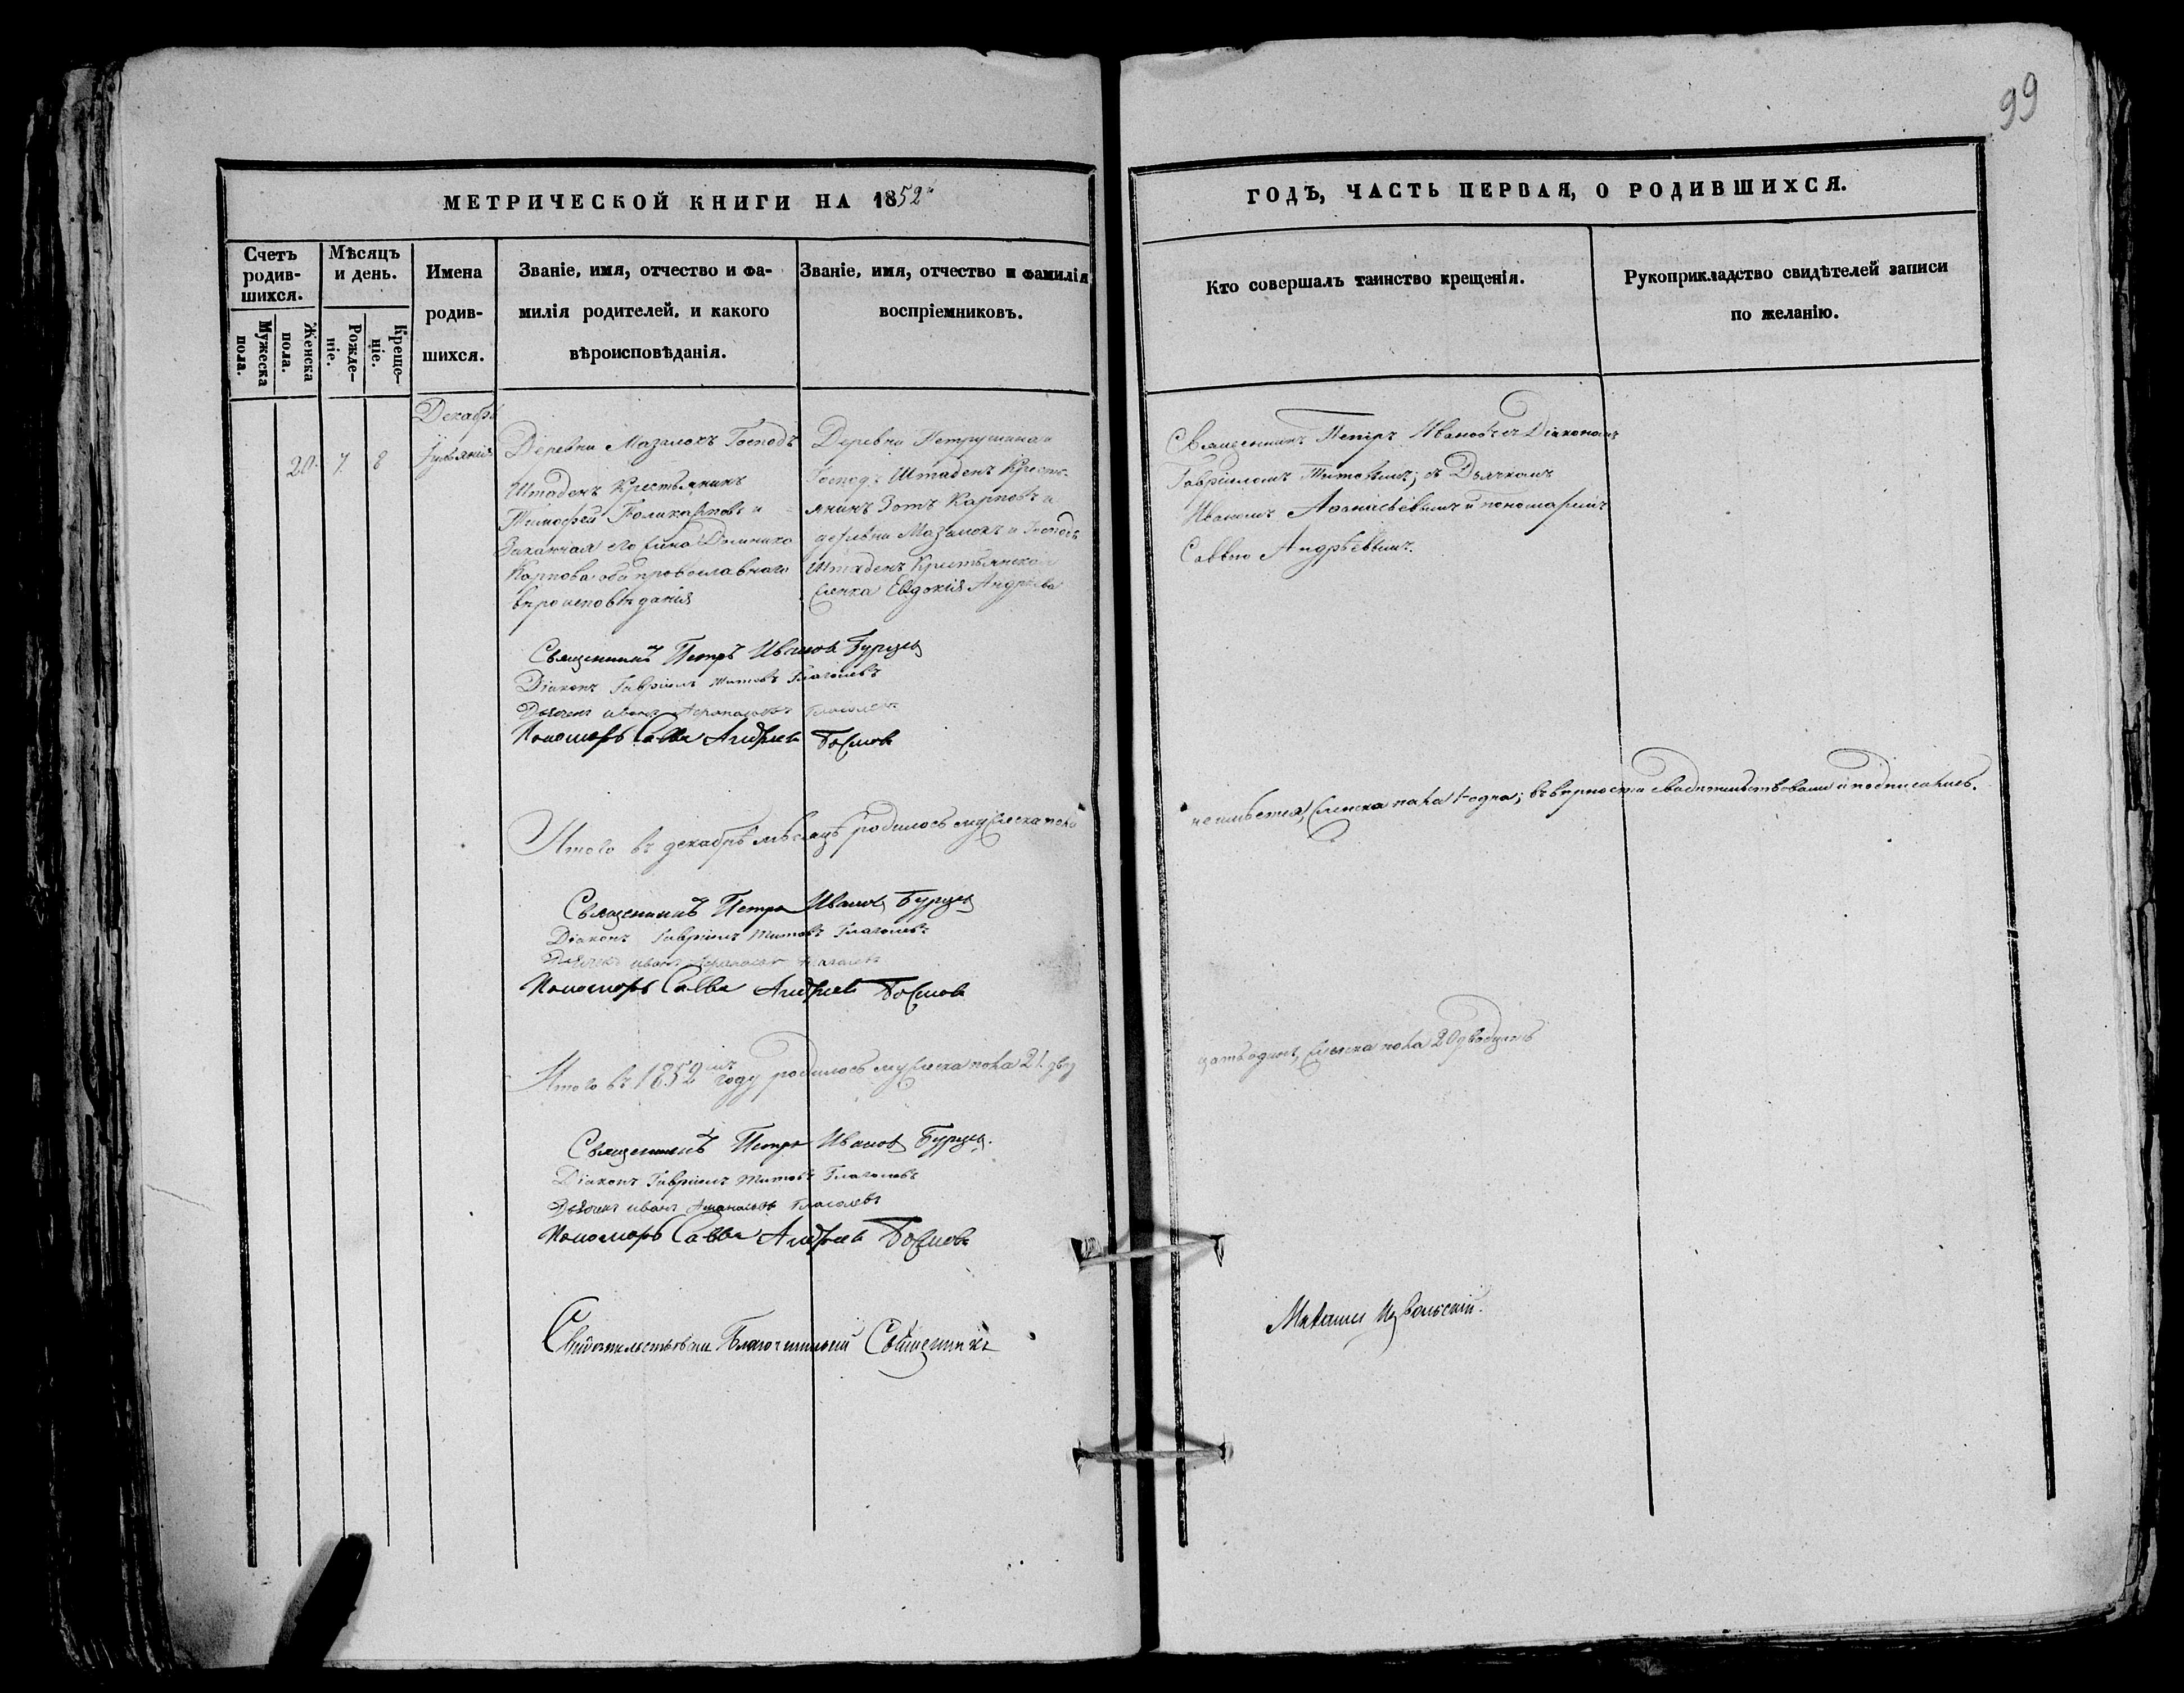 99
МЕТРИЧЕСКОЙ КНИГИ НА 1852й
ГОДЪ, ЧАСТЬ ПЕРВАЯ, О РОДИВШИХСЯ.
Счетъ родив-шихся.
Мужеска пола.
Женска пола.
Мѣсяцъ и день.
Рожде-ніе.
Креще-ніе.
Имена
родив-
шихся.
Званіе, имя, отчество и фа-
милія родителей, и какого
вѣроисповѣданія.
Званіе, имя, отчество и фамилія
воспріемниковъ.
Кто совершалъ таинство крещенія.
Рукоприкладство свидѣтелей записи
по желанію.
Декабрь
20. 7. 8
Деревни Мазалокъ Господъ
Штаденъ Крестьянинъ
Тимофей Поликарповъ и
Законная его жена Домника
Карпова оба православнаго
вѣроисповѣданія
Деревни Петрушина
Господъ Штаденъ Кресть-
янинъ Зотъ Карповъ и
деревни Мазалокъ Господъ
Штаденъ Крестьянская
женка Евдокія Андреева
Священникъ Петръ Ивановъ съ Діакономъ
Гавріиломъ Титовымъ; съ Дьячкомъ
Иваномъ Аѳонасьевымъ и пономаремъ
Саввою Андрѣевымъ.
Священникъ Петръ Ивановъ Бурцев
Діаконъ Гавріилъ Титовъ Глаголевъ
Дьячекъ иванъ Афонасовъ Глаголевъ
Пономорь Савва Андреев Божмов
Итого въ декабрѣ мѣсяцѣ родилось мужеска пола
не имѣется, женска пола 1-одна; въ вѣрности свидѣтельствовали и подписались.
Священникъ Петръ Ивановъ Бурцев
Діаконъ Гавріилъ Титовъ Глаголевъ
Дьячекъ иванъ Афонасов Глаголев
Пономорь Савва Андреев Божмов
Итого въ 1852мъ году родилось мужеска пола 21. двад
цать одинъ, женска пола 20 двадцать
Священникъ Петръ Ивановъ Бурцев.
Діаконъ Гавріилъ Титовъ Глаголевъ
Дьячекъ иванъ Афанасьев Глаголевъ
Пономорь Савва Андреев Божмов
Свидѣтельствовалъ Благочинный Священникъ
Михаилъ Извольскій.